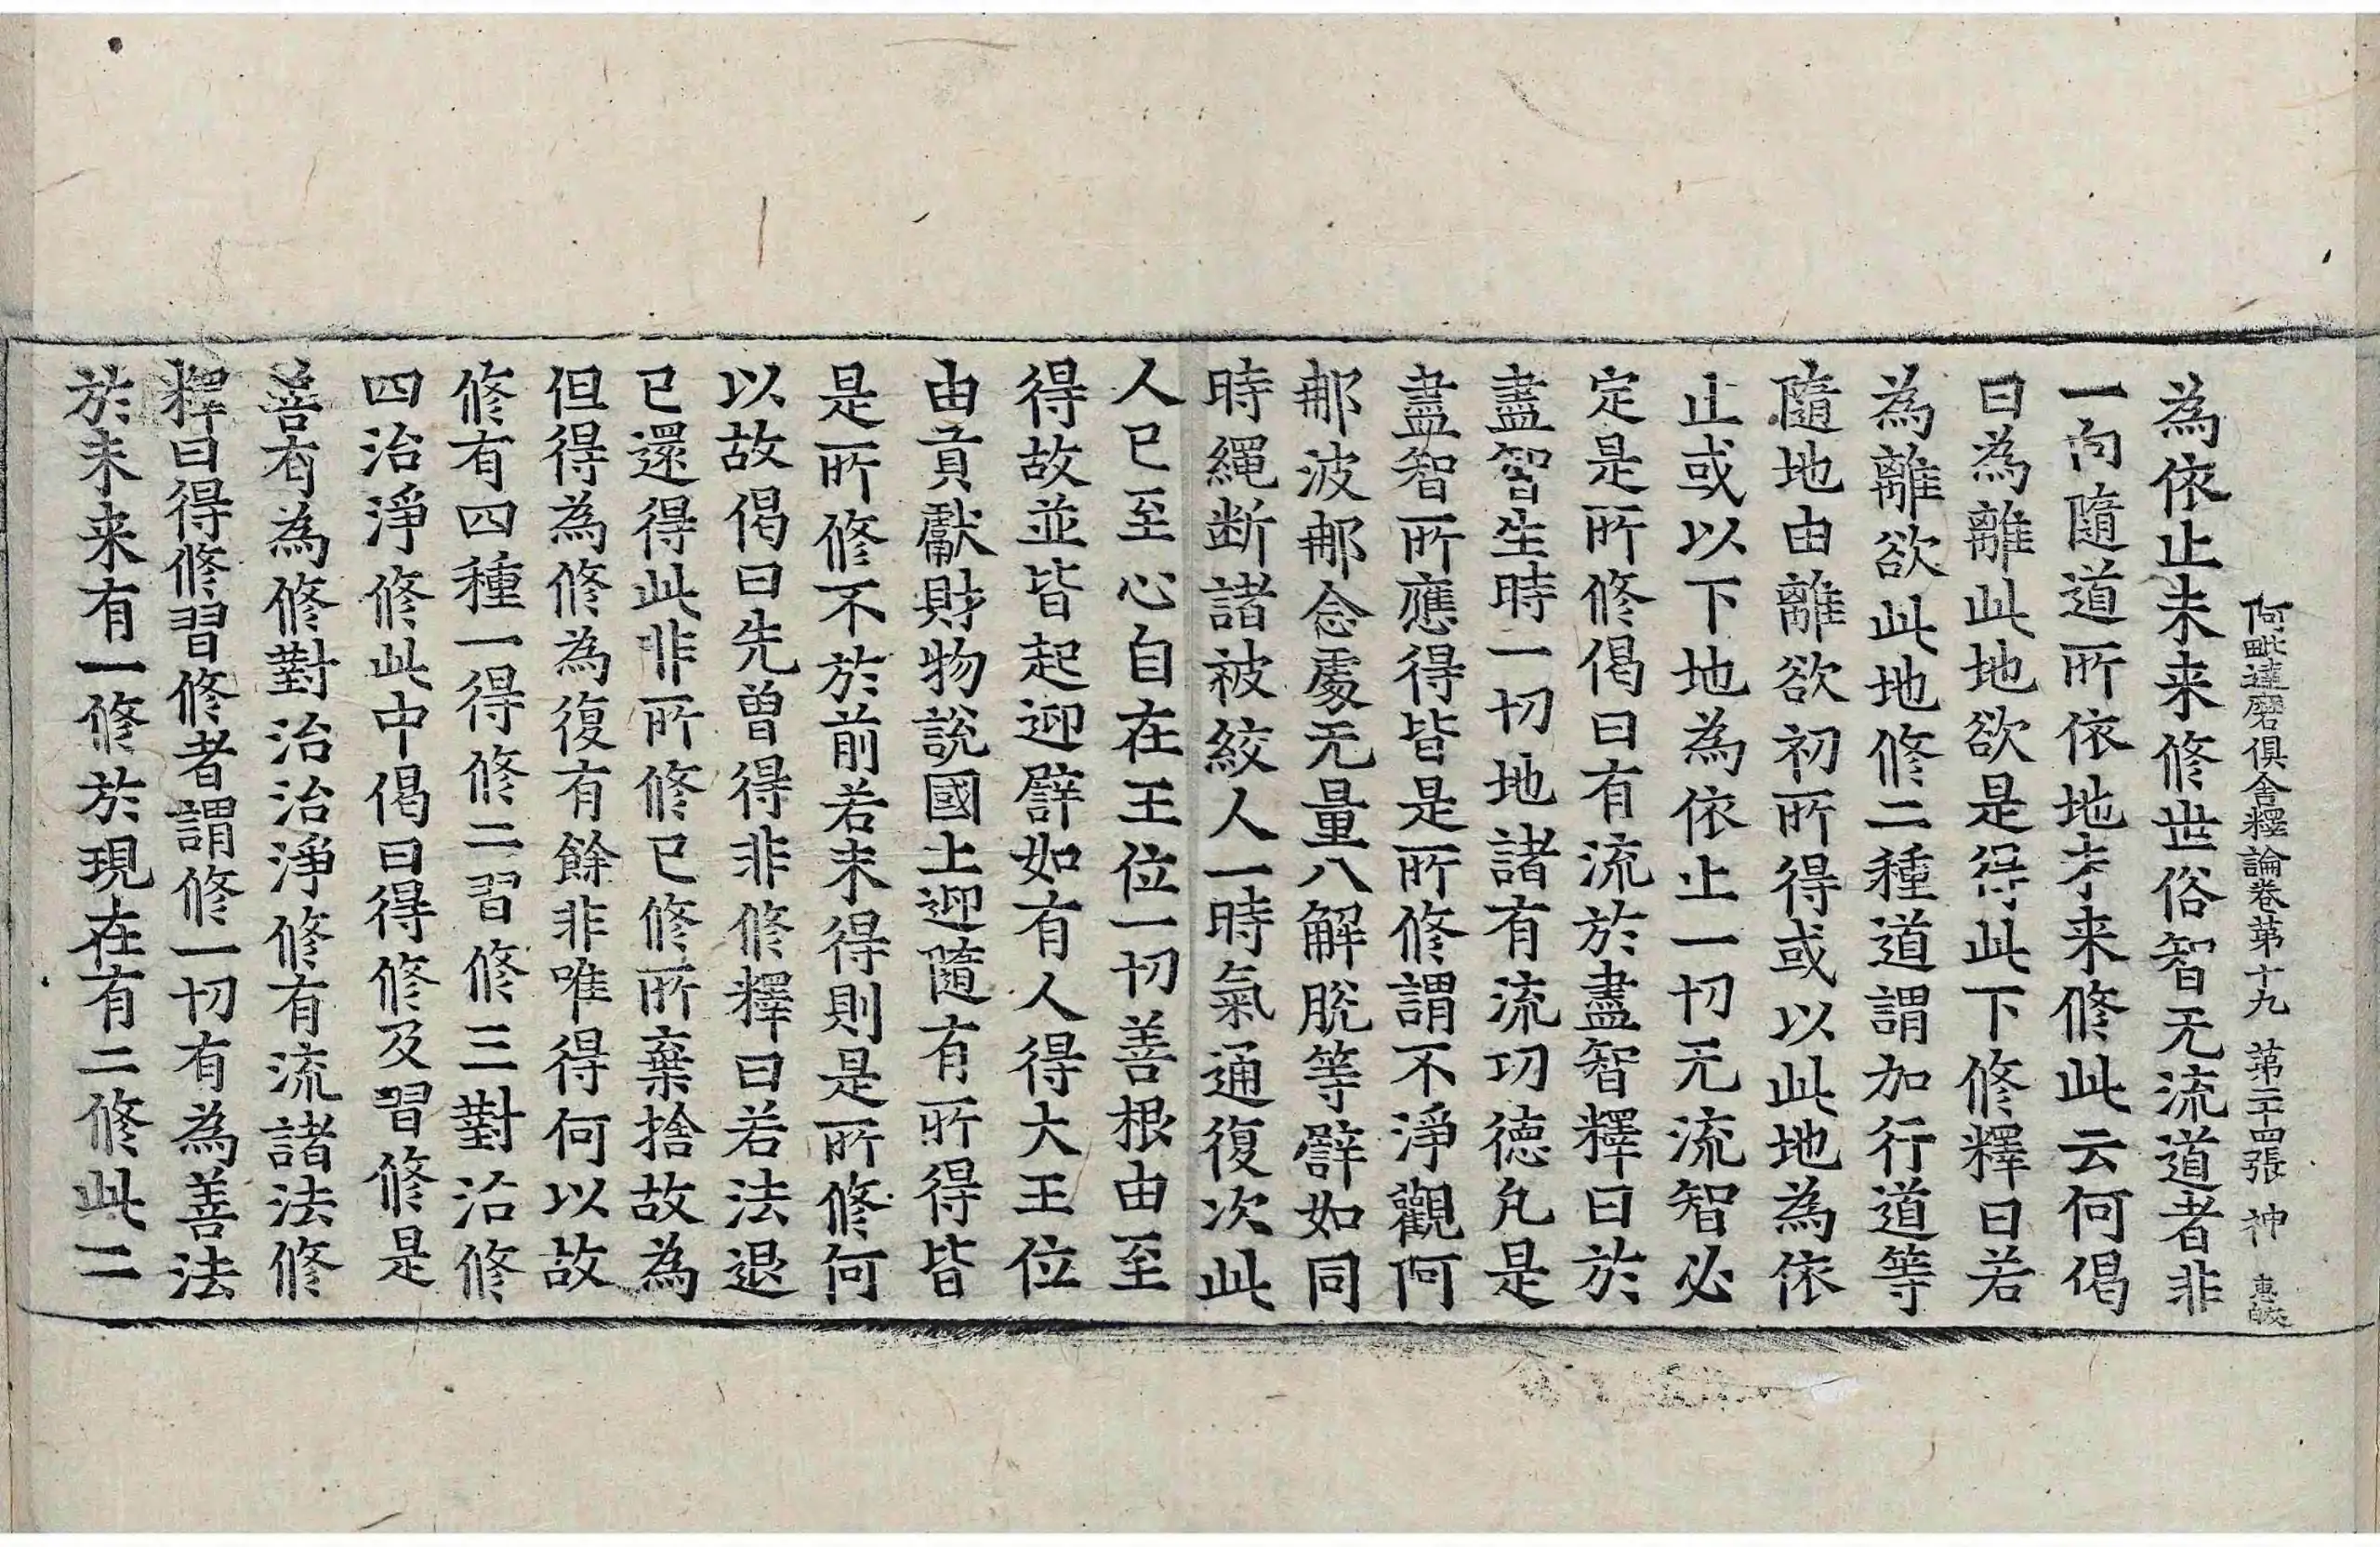 阿毗達磨俱舍釋論卷第十九 第二十四張 神 惠皎
為依止未来修世俗智无流道者非
一向隨道所依地未来修此云何偈
曰為離此地欲是得此下修釋曰若
為離欲此地修二種道謂加行道等
隨地由離欲初所得或以此地為依
止或以下地為依止一切无流智必
定是所修偈曰有流於盡智釋曰於
盡智生時一切地諸有流功德凡是
盡智所應得皆是所修謂不淨觀阿
那波那念處无量八解脫等譬如同
時繩斷諸被絞人一時氣通復次此
人已至心自在王位一切善根由至
得故並皆起迎譬如有人得大王位
由貢獻財物說國土迎隨有所得皆
是所修不於前若未得則是所修何
以故偈曰先曾得非修釋曰若法退
已還得此非所修已修所棄捨故為
但得為修為復有餘非唯得何以故
修有四種一得修二習修三對治修
四治淨修此中偈曰得修及習修是
善有為修對治治淨修有流諸法修
釋曰得修習修者謂修一切有為善法
於未来有一修於現在有二修此二